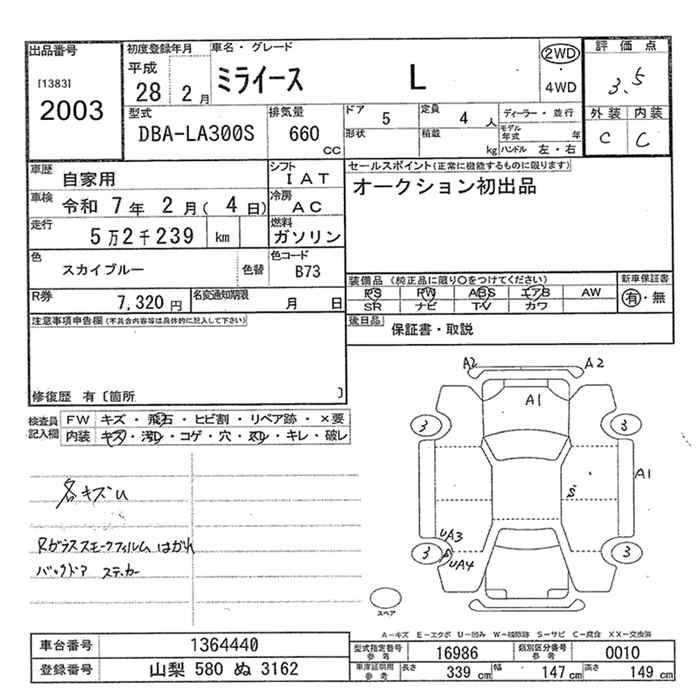 出品番号
[1383]
2003
初度登録年月
平成
28 2月
車名・グレード
ミライース L
2WD
・
4WD
評価点
3.5
外装 内装
C C
型式
DBA-LA300S
排気量
660
CC
ドア 5
形状
定員 4 人
積載 kg
ディーラー・並行
モデル年式 年
ハンドル 左・右
車歴 自家用
シフト IAT
車検 令和 7年 2月( 4日)
冷房 AC
走行 5万2千239 km
燃料 ガソリン
色 スカイブルー 色替
色コード B73
R券 7,320 円
名変通知期限 月 日
セールスポイント(正常に機能するものに限ります)
オークション初出品
装備品 (純正品に限り○をつけてください)
PS PW ABS エアB AW
SR ナビ T・V カワ
新車保証書
有・無
後日品 保証書・取説
注意事項申告欄(不具合内容等は具体的に記入して下さい)
修復歴 有〔箇所 〕
検査員記入欄
FW キズ・飛石・ヒビ割・リペア跡・×要
内装 キズ・汚レ・コゲ・穴・スレ・キレ・破レ
各キズU
Rガラススモークフィルムはがれ
バックドア ステッカー
A2 A2
A1
3 3
A1
S
UA3
3 3
UA4
スペア
A-キズ E-エクボ U-凹み W-補修跡 S-サビ C-腐食 XX-交換済
車台番号 1364440
登録番号 山梨 580 ぬ 3162
型式指定番号 参考 16986
類別区分番号 参考 0010
車庫証明用 参考
長さ 339 cm 幅 147 cm 高さ 149 cm